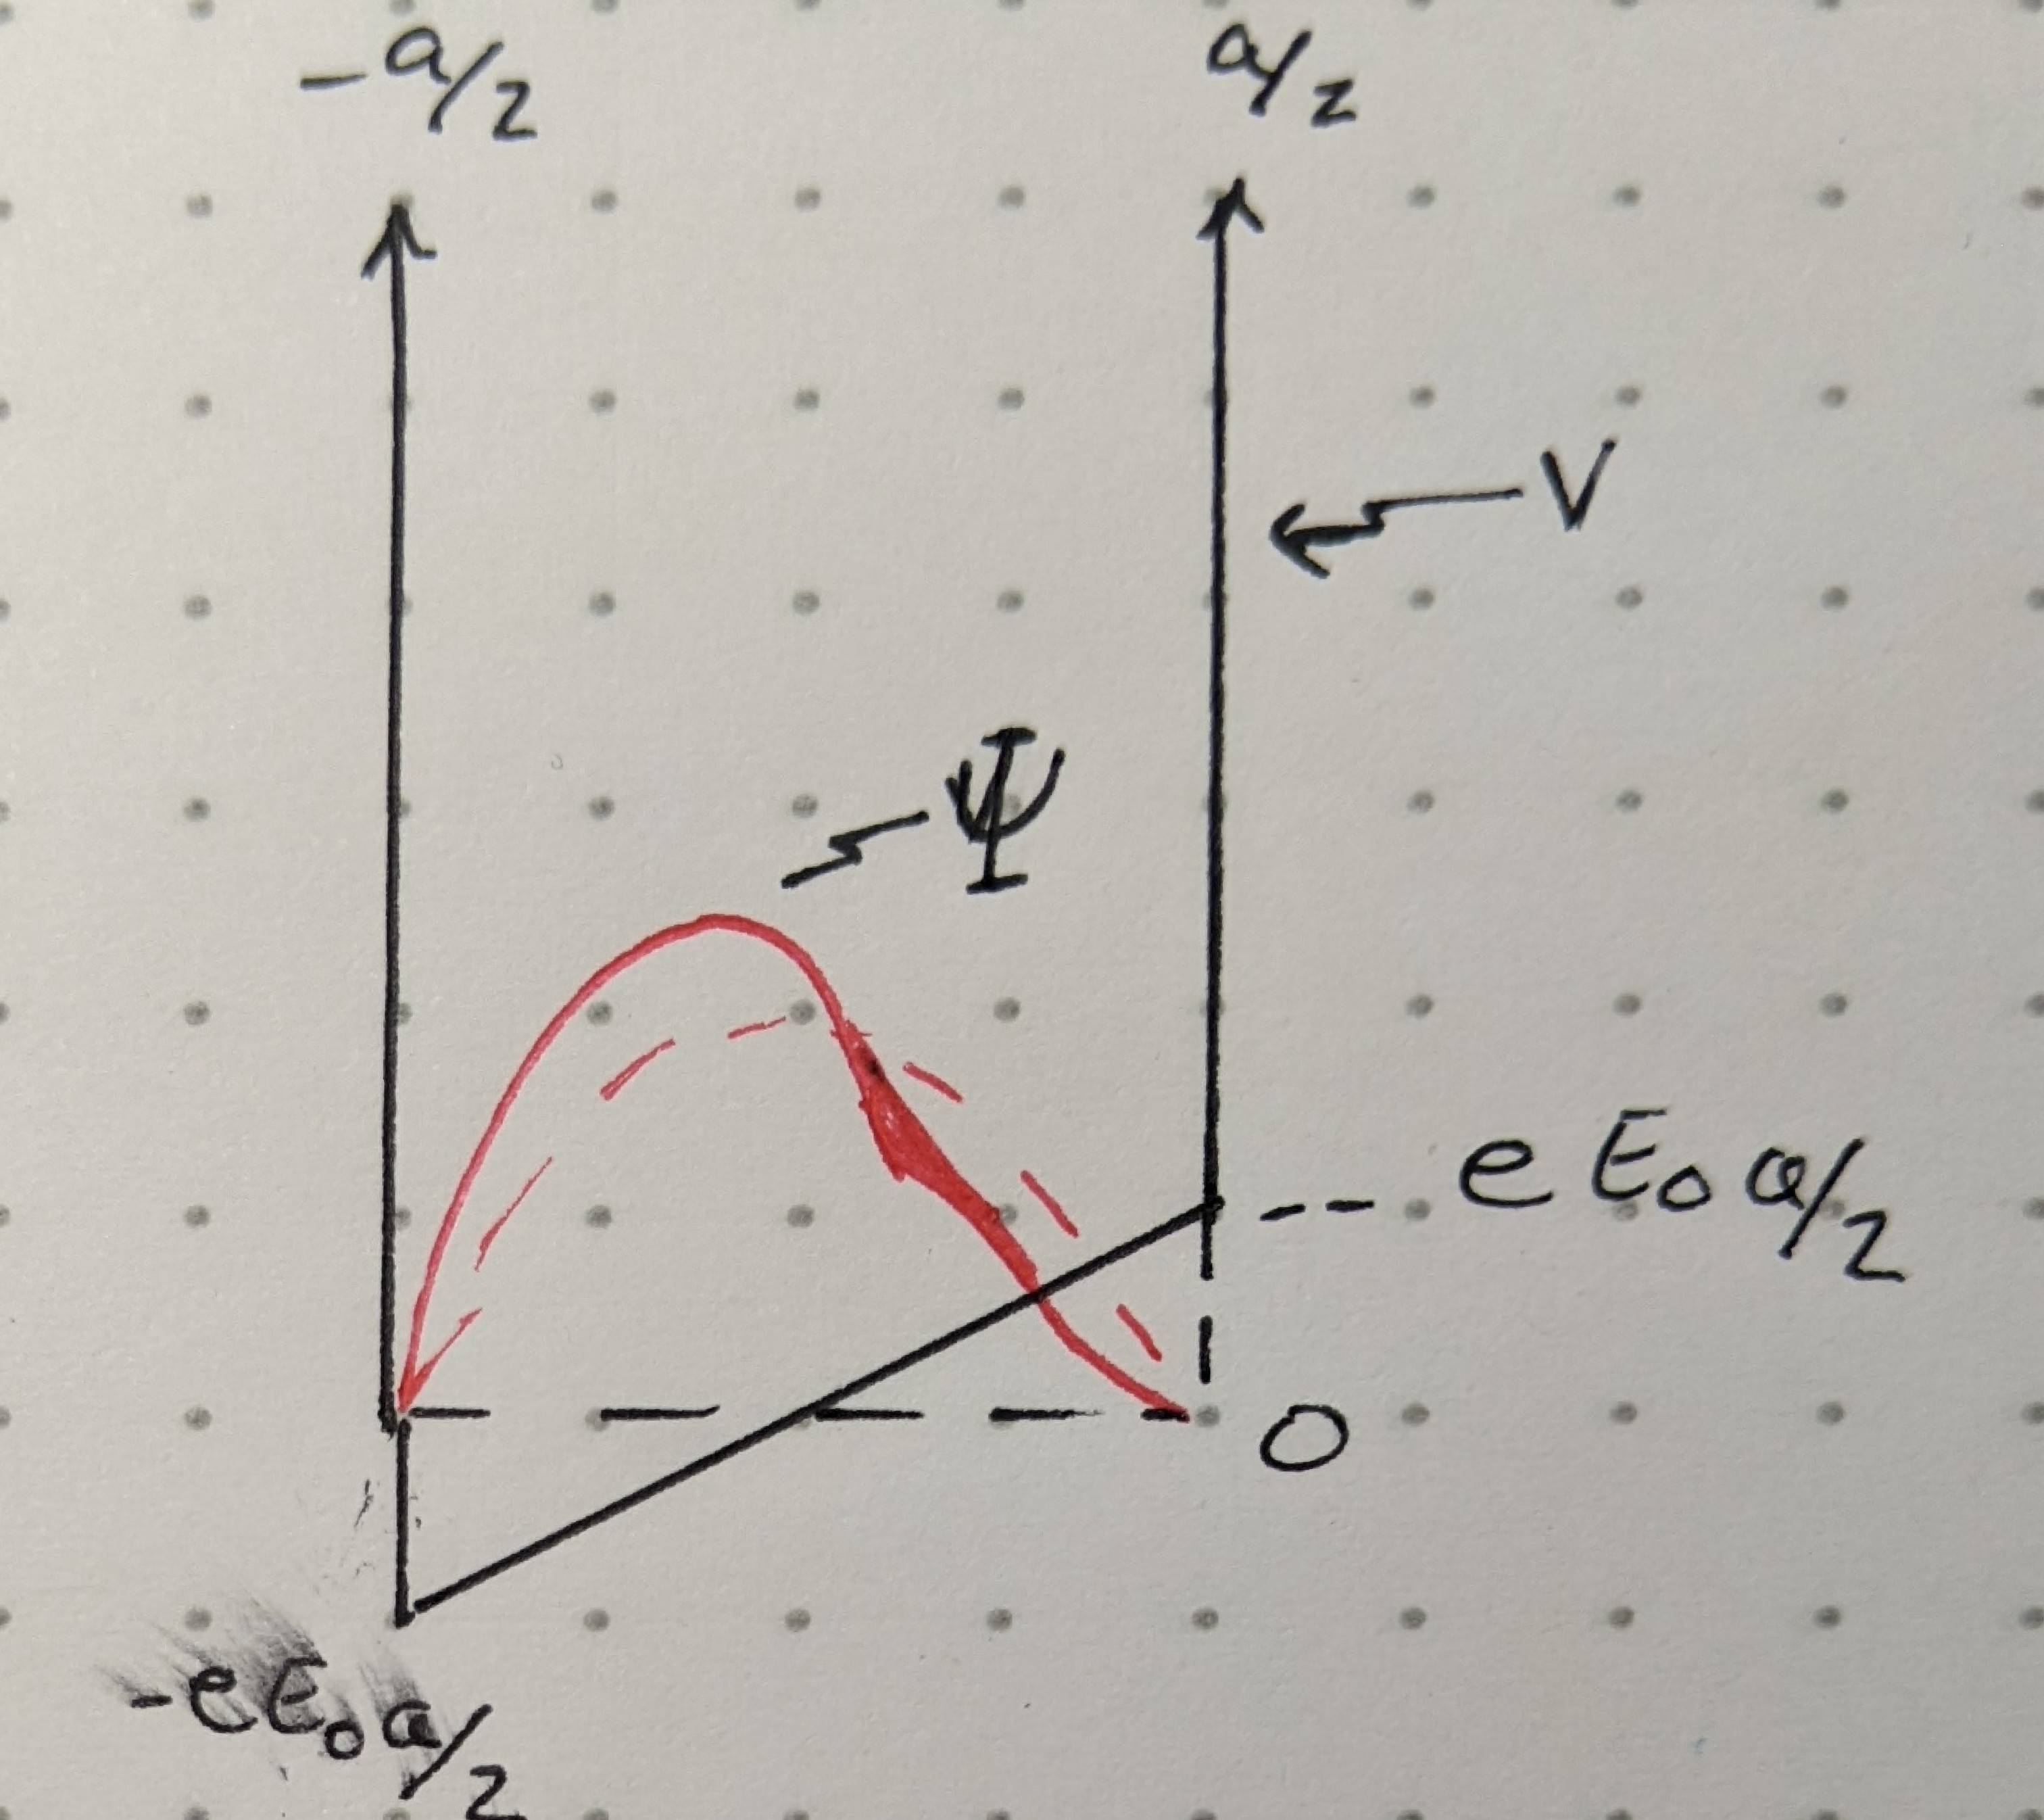 -a/2
a/2
V
Ψ
e E₀ a/2
0
-e E₀ a/2